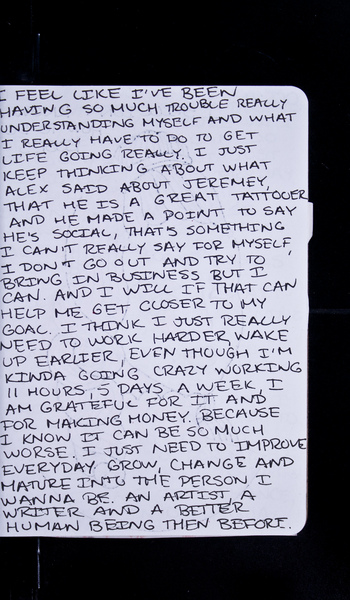 I FEEL LIKE I'VE BEEN
HAVING SO MUCH TROUBLE REALLY
UNDERSTANDING MYSELF AND WHAT
I REALLY HAVE TO DO TO GET
LIFE GOING REALLY. I JUST
KEEP THINKING ABOUT WHAT
ALEX SAID ABOUT JEREMEY,
THAT HE IS A GREAT TATTOUER
AND HE MADE A POINT TO SAY
HE'S SOCIAL, THAT'S SOMETHING
I CAN'T REALLY SAY FOR MYSELF,
I DON'T GO OUT AND TRY TO
BRING IN BUSINESS BUT I
CAN. AND I WILL IF THAT CAN
HELP ME GET CLOSER TO MY
GOAL. I THINK I JUST REALLY
NEED TO WORK HARDER, WAKE
UP EARLIER, EVEN THOUGH I'M
KINDA GOING CRAZY WORKING
11 HOURS, 5 DAYS A WEEK, I
AM GRATEFUL FOR IT AND
FOR MAKING MONEY. BECAUSE
I KNOW IT CAN BE SO MUCH
WORSE. I JUST NEED TO IMPROVE
EVERYDAY GROW, CHANGE AND
MATURE INTO THE PERSON I
WANNA BE. AN ARTIST, A
WRITER AND A BETTER
HUMAN BEING THEN BEFORE.